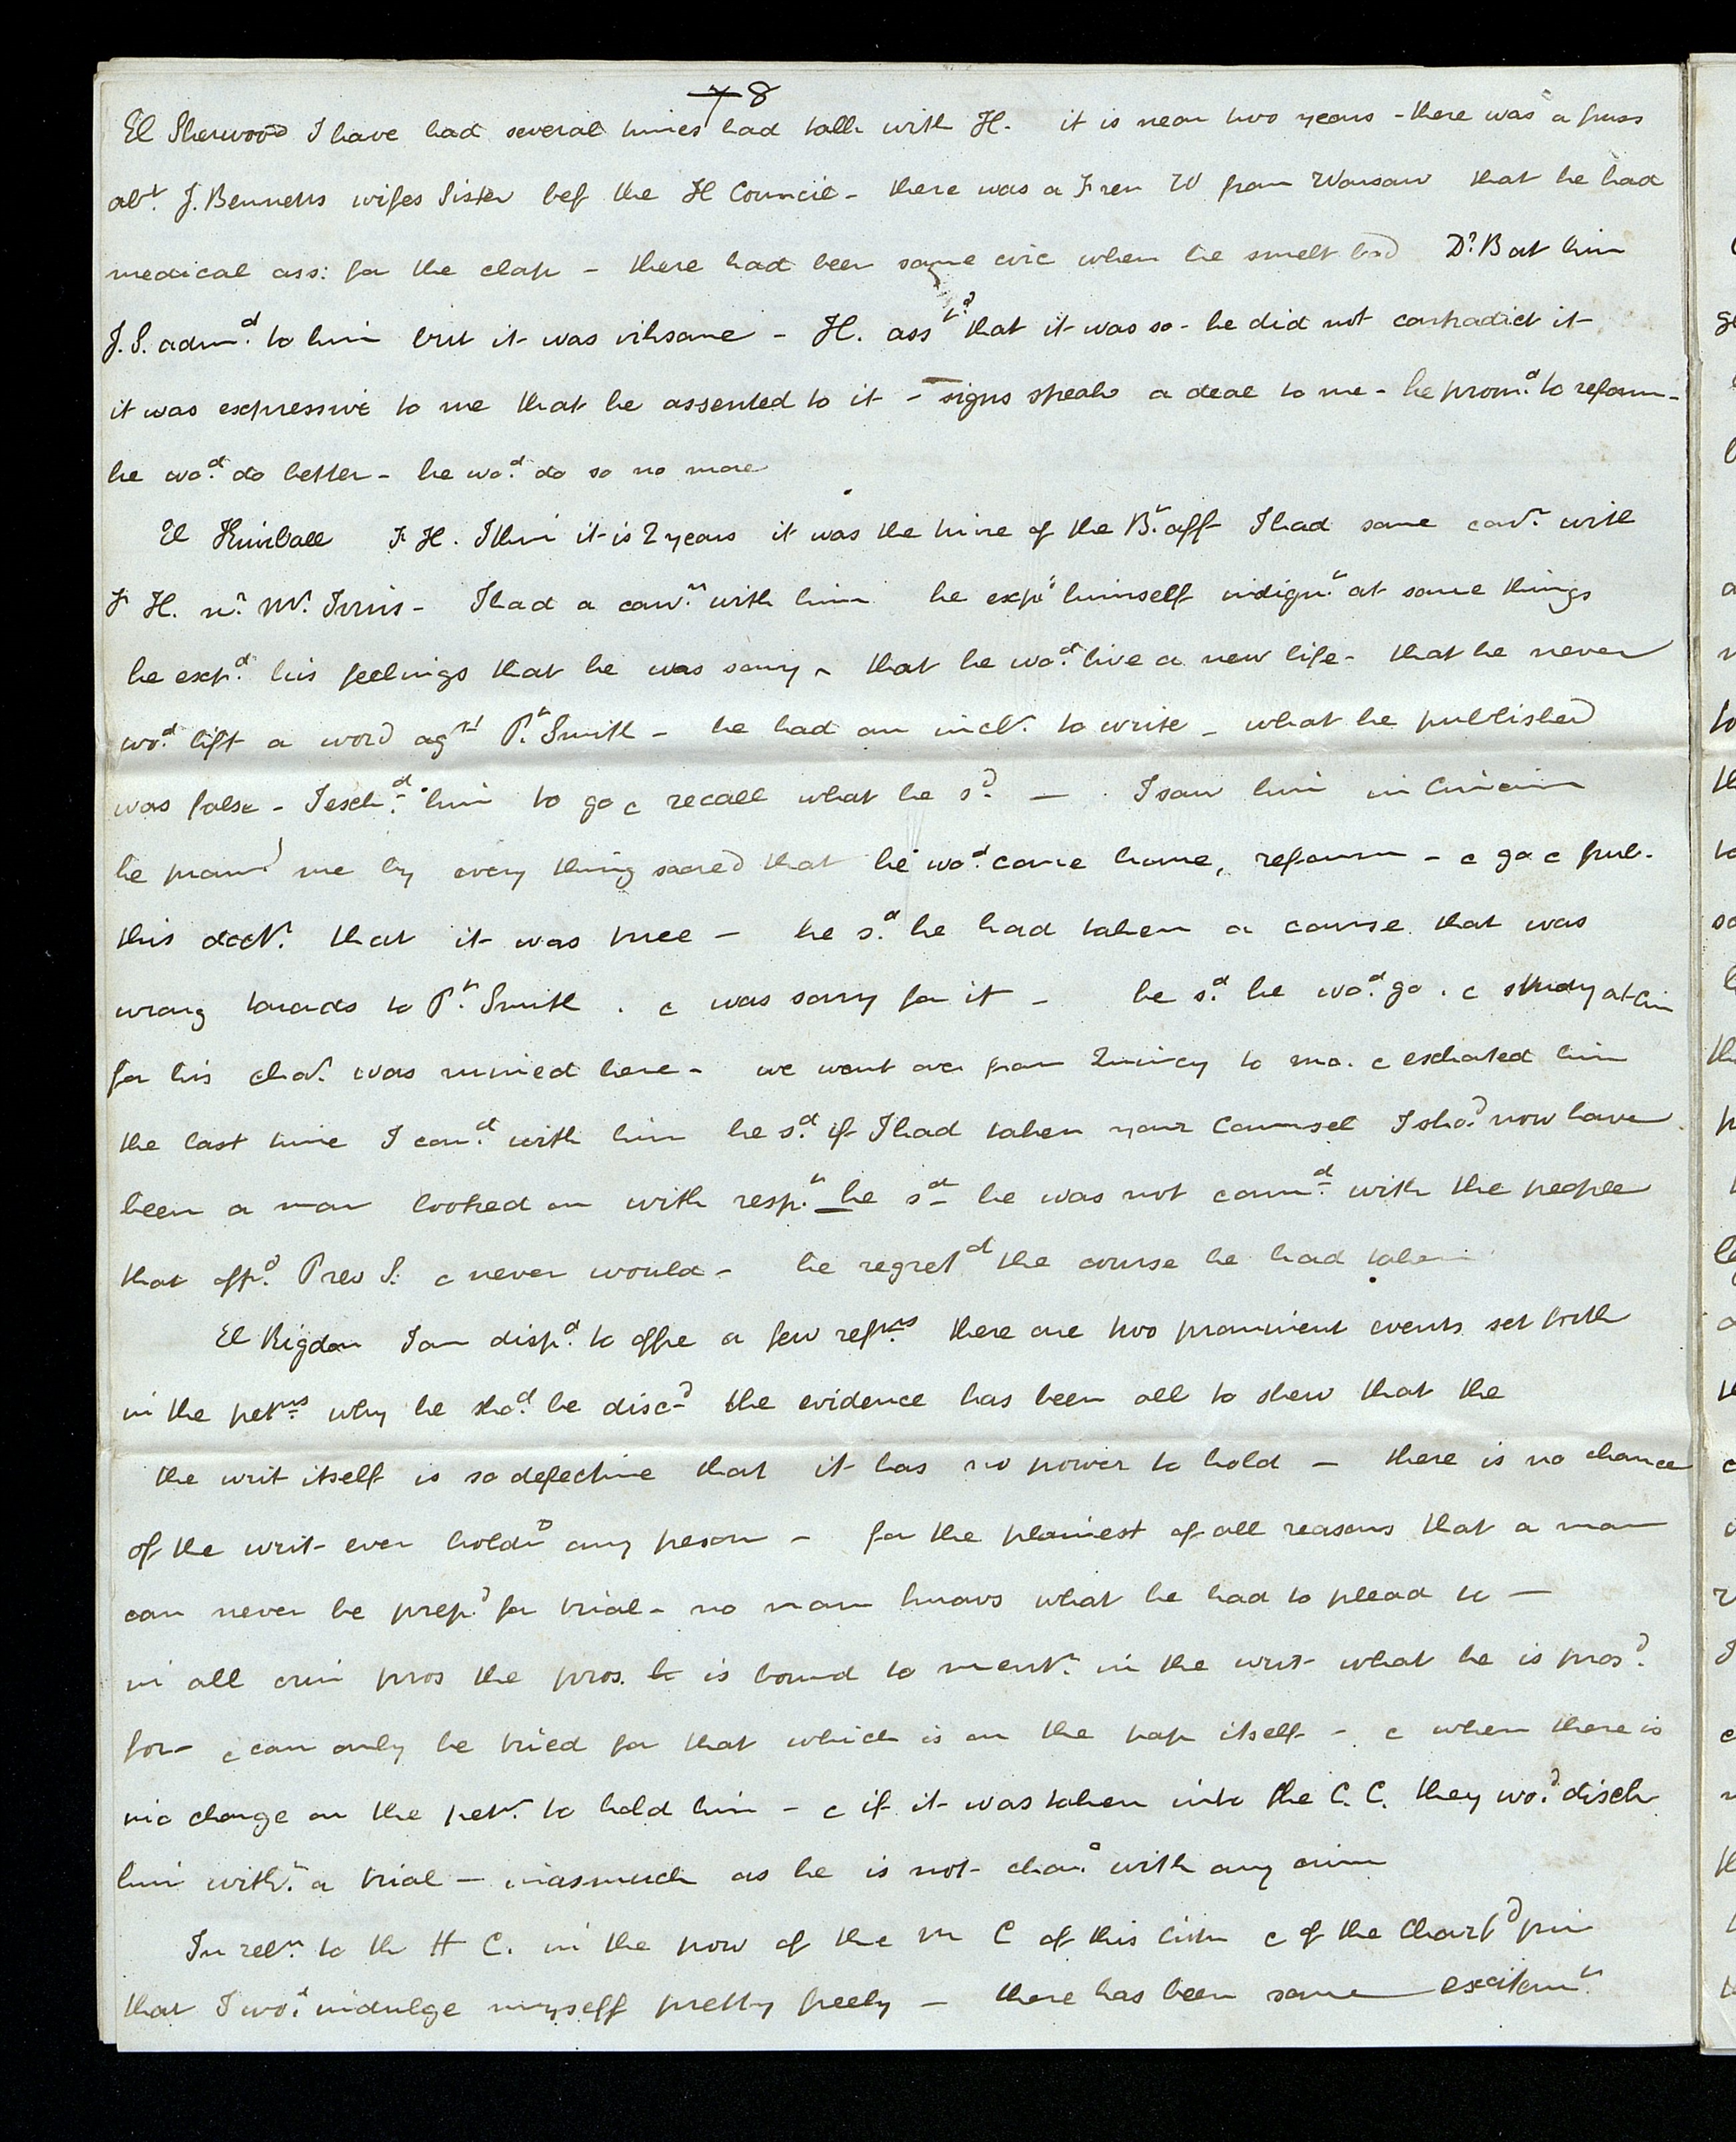 8
El Sherwood I have had several times had talk with H. it is near two years - there was a fuss
abt. J. Bennetts wifes Sister bef the H Council - there was a Fren W from Warsaw that he had
medical ass: for the clap - there had been some evic when he smelt bad Dr. B at him
J. S. admd. to him but it was irksome - H. asstd. that it was so - he did not contradict it
it was expressive to me that he assented to it - signs speak a deal to me - he promd. to reform -
he wod. do better - he wod. do so no more
El Kimball F H. I thin it is 2 years it was the time of the Bt. aff I had some convn. with
F H. nr. Mr. Ivins - I had a convn. with him he expd. himself indignt. at some things
he expd. his feelings that he was sorry & that he wod. live a new life - that he never
wod. lift a word agst Pt. Smith - he had an inclt. to write - what he published
was false - I exhd. him to go & recall what he sd. — I saw him in Cincin
he promd me by every thing sacred that he wod. come home, reform - & go & pub.
this doctn. that it was true — he sd. he had taken a course that was
wrong towards to Pt. Smith . & was sorry for it - he sd. he wod. go . & study at Cin
for his char. was ruined here - we went over from Quincy to mo. & exhorted him
the last time I cond. with him he sd. if I had taken your Counsel I shod. now have
been a man looked on with respt. he sd he was not connd. with the people
that oppd. Pres S. & never would - he regretd the course he had taken
El Rigdon I am dispd. to offre a few refns there are two prominent events set forth
in the petns why he shod. be discd the evidence has been all to shew that the
the writ itself is so defective that it has no power to hold — there is no chance
of the writ ever holdg any peson - for the plainest of all reasons that a man
can never be prepd. for trial - no man knows what he had to plead to —
in all crim pros the pros. is bound to mentn. in the writ what he is prosd.
for - & can only be tried for that which is on the pap itself - & when there is
no charge on the petn. to hold him - & if it was taken into the C. C. they wod. disch
him witht. a trial — inasmuch as he is not chard with any crim
In reln. to th H C. in the pow of the M C of this City & of the Chartd priv
that I wod. indulge myself pretty freely — there has been some excitemt.